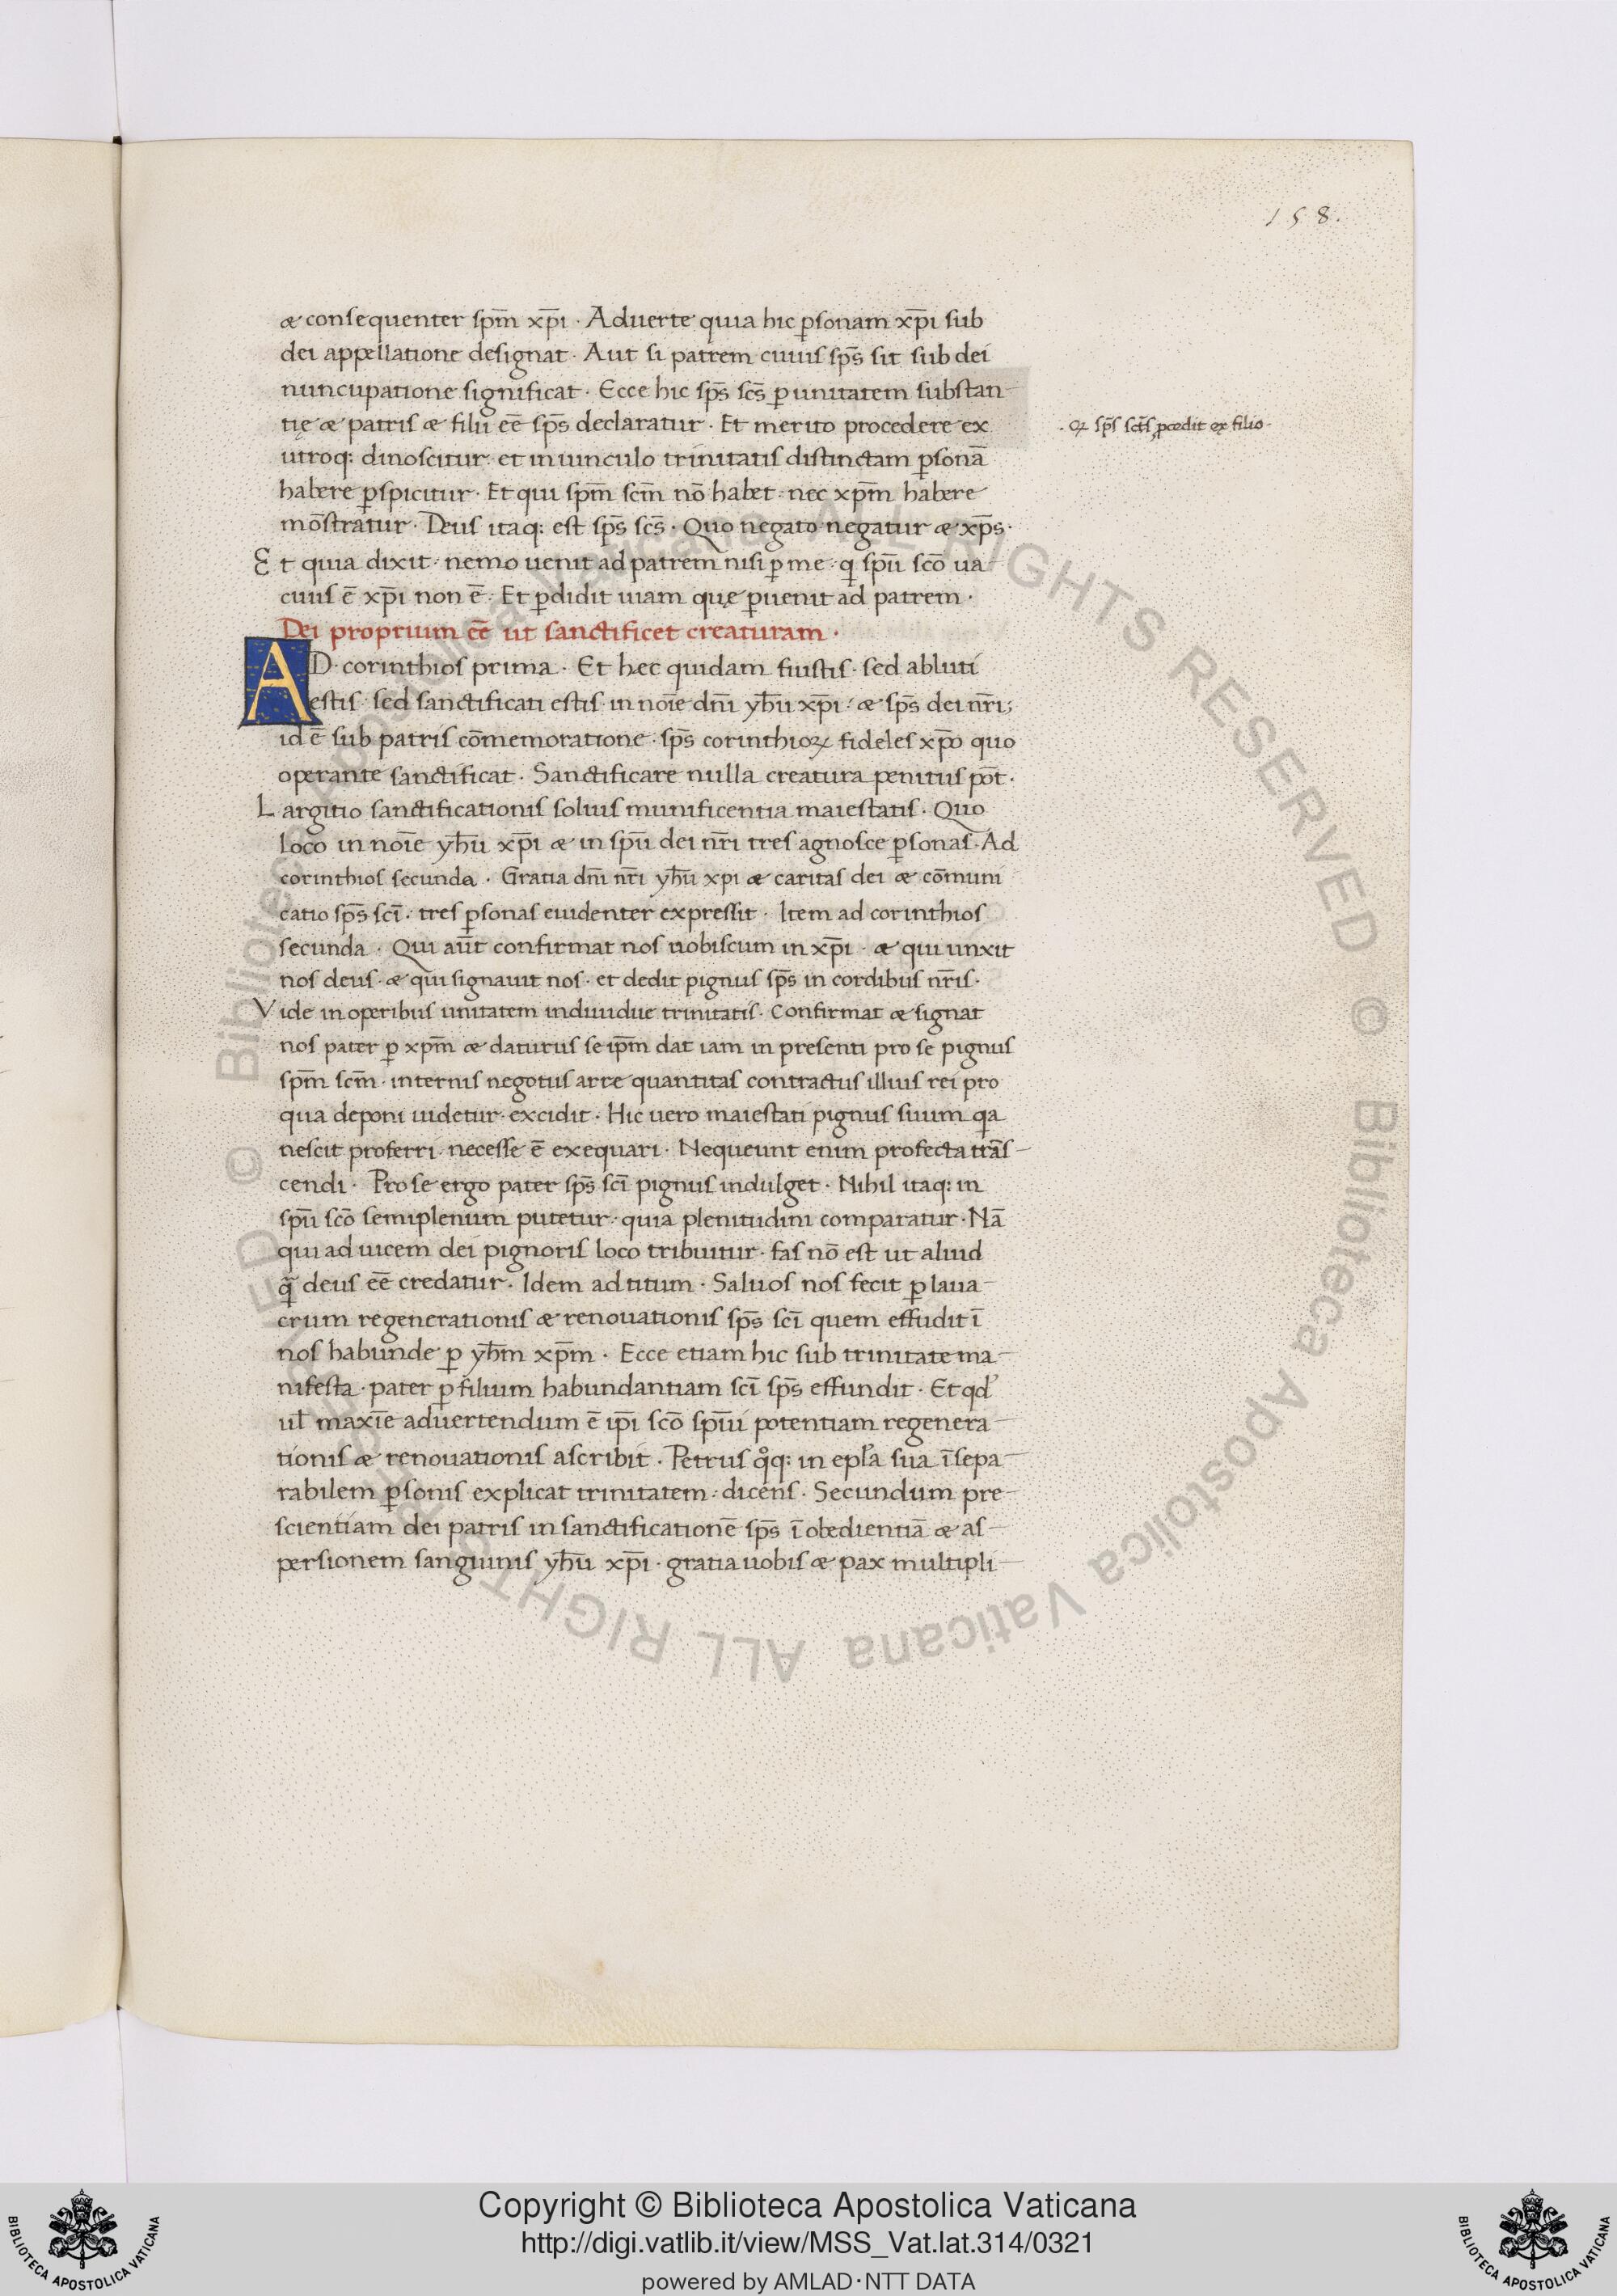 158.
æ consequenter sp̅m xp̅i · Aduerte quia hic ꝑsonam xp̅i sub
dei appellatione designat · Aut si patrem cuius sp̅s sit sub dei
nuncupatione significat · Ecce hic sp̅s sc̅s ꝑ unitatem substan-
tię æ patris æ filii ee̅ sp̅s declaratur · Et merito procedere ex
utroq: dinoscitur · et in uinculo trinitatis distinctam ꝑsona̅
habere ꝑspicitur · Et qui sp̅m sc̅m no̅ habet · nec xp̅m habere
mo̅stratur · Deus itaq: est sp̅s sc̅s · Quo negato negatur æ xp̅s ·
Et quia dixit · nemo uenit ad patrem nisi ꝑ me · q̅ sp̅u sc̅o ua
cuus e̅ xp̅i non e̅ · Et ꝑdidit uiam quę ꝑuenit ad patrem ·
Dei proprium ee̅ ut sanctificet creaturam ·
AD corinthios prima · Et hec quidam fuistis · sed abluti
estis · sed sanctificati estis · in no̅ie dn̅i yh̅u xp̅i · æ sp̅s dei nr̅i;
id e̅ sub patris co̅memoratione · sp̅s corinthioꝝ fideles xp̅o quo
operante sanctificat · Sanctificare nulla creatura penitus po̅t ·
Largitio sanctificationis solius munificentia maiestatis · Quo
loco in no̅ie yh̅u xp̅i æ in sp̅u dei nr̅i tres agnosce ꝑsonas · Ad
corinthios secunda · Gratia dn̅i nr̅i yh̅u xpi æ caritas dei æ co̅muni
catio sp̅s sc̅i · tres ꝑsonas euidenter expressit · Item ad corinthios
secunda · Qui au̅t confirmat nos uobiscum in xp̅i · æ qui unxit
nos deus · æ qui signauit nos · et dedit pignus sp̅s in cordibus nr̅is ·
Vide in operibus unitatem indiuidue trinitatis · Confirmat æ signat
nos pater ꝑ xp̅m æ daturus se ip̅m dat iam in pręsenti pro se pignus
sp̅m sc̅m · internis negotiis arre quantitas contractus illius rei pro
qua deponi uidetur · excidit · Hic uero maiestati pignus suum q̅a
nescit proferri · necesse e̅ exequari · Nequeunt enim profecta tra̅s-
cendi · Pro se ergo pater sp̅s sc̅i pignus indulget · Nihil itaq: in
sp̅u sc̅o semiplenum putetur · quia plenitudini comparatur · Na̅
qui ad uicem dei pignoris loco tribuitur · fas no̅ est ut aliud
qua̅ deus ee̅ credatur · Idem ad titum · Saluos nos fecit ꝑ laua-
crum regenerationis æ renouationis sp̅s sc̅i quem effudit i̅
nos habunde ꝑ yh̅m xp̅m · Ecce etiam hic sub trinitate ma-
nifesta · pater ꝑ filium habundantiam sc̅i sp̅s effundit · Et qd̓
ul̅ maxi̅e aduertendum e̅ ip̅i sc̅o spi̅ui potentiam regenera-
tionis æ renouationis ascribit · Petrus qͦq: in epl̓a sua i̅sepa-
rabilem ꝑsonis explicat trinitatem · dicens · Secundum pre-
scientiam dei patris in sanctificatione̅ sp̅s i̅ obedientia̅ æ as-
persionem sanguinis yh̅u xp̅i · gratia uobis æ pax multipli-
· qꝫ sp̅s sct̅s ꝓcedit ex filio ·
Copyright © Biblioteca Apostolica Vaticana
http://digi.vatlib.it/view/MSS_Vat.lat.314/0321
powered by AMLAD·NTT DATA
BIBLIOTECA APOSTOLICA VATICANA
BIBLIOTECA APOSTOLICA VATICANA
© Biblioteca Apostolica Vaticana ALL RIGHTS RESERVED © Biblioteca Apostolica Vaticana ALL RIGHTS RESERVED